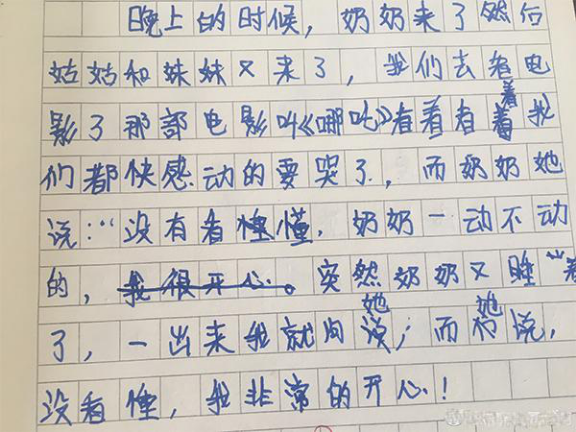 晚上的时候，奶奶来了然后
姑姑和妹妹又来了，我们去看电
影了那部电影叫《哪吒》看着看着我
们都快感动的要哭了，而奶奶她
说：“没有看懂，奶奶一动不动
的，我很开心。突然奶奶又睡着
了，一出来我就问她说；而她说，
没看懂，我非常的开心！